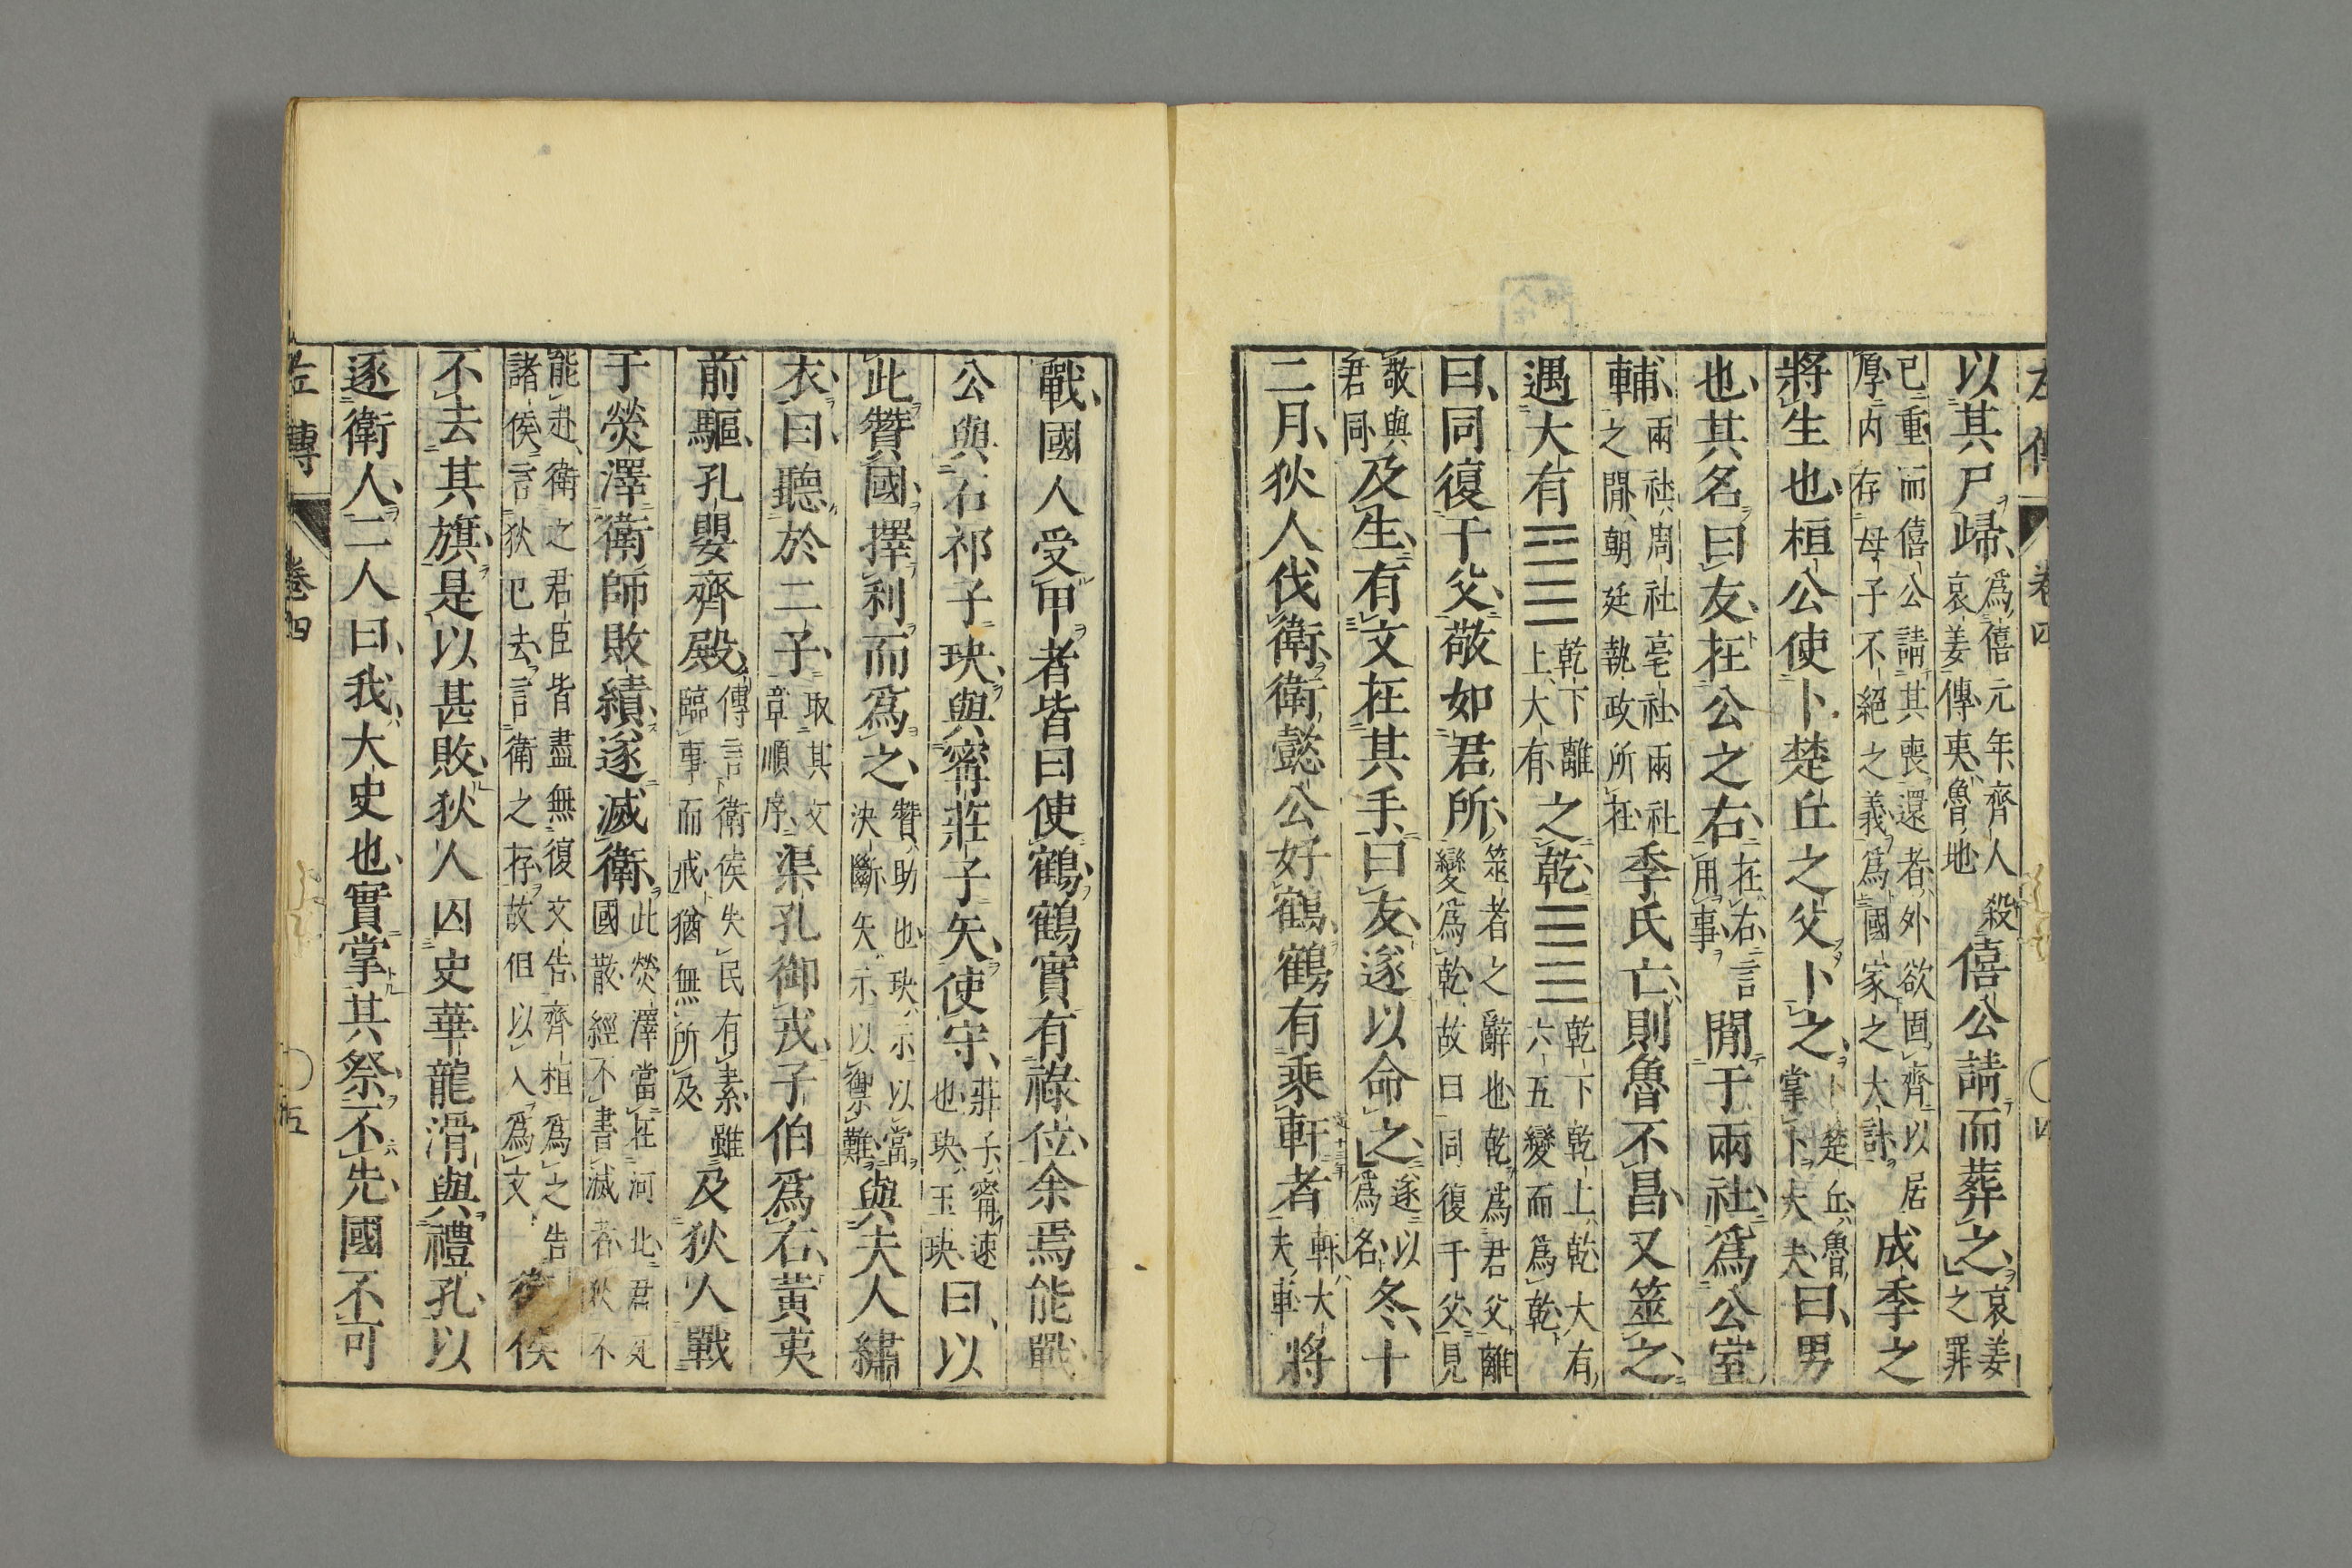 以其尸歸爲僖元年齊人殺哀姜傳夷魯地僖公請而葬之哀姜之罪
已重而僖公請其喪還者外欲固齊以居厚内存母子不絕之義爲國家之大計成季之
將生也桓公使卜楚丘之父卜之卜楚丘魯掌卜大夫曰男
也其名曰友在公之右在右言用事閒于兩社爲公室
輔兩社周社亳社兩社之閒朝廷執政所在季氏亡則魯不昌又筮之
遇大有䷍乾下離上大有之乾䷀乾下乾上乾大有六五變而爲乾
曰同復于父敬如君所筮者之辭也乾爲君父離變爲乾故曰同復于父見
敬與君同及生有文在其手曰友遂以命之遂以爲名冬十
二月狄人伐衛衛懿公好鶴鶴有乘軒者軒大夫車將
戰國人受甲者皆曰使鶴鶴實有祿位余焉能戰
公與石祁子玦與甯莊子矢使守莊子甯速也玦玉玦曰以
此贊國擇利而爲之贊助也玦示以當決斷矢示以禦難與夫人繡
衣曰聽於二子取其文章順序渠孔御戎子伯爲右黃夷
前驅孔嬰齊殿傳言衛侯失民有素雖臨事而戒猶無所及及狄人戰
于熒澤衛師敗績遂滅衛此熒澤當在河北君死國散經不書滅者狄不
能赴衛之君臣皆盡無復文告齊桓爲之告諸侯言狄已去言衛之存故但以入爲文衛侯
不去其旗是以甚敗狄人囚史華龍滑與禮孔以
逐衛人二人曰我大史也實掌其祭不先國不可
左傳 卷四 五